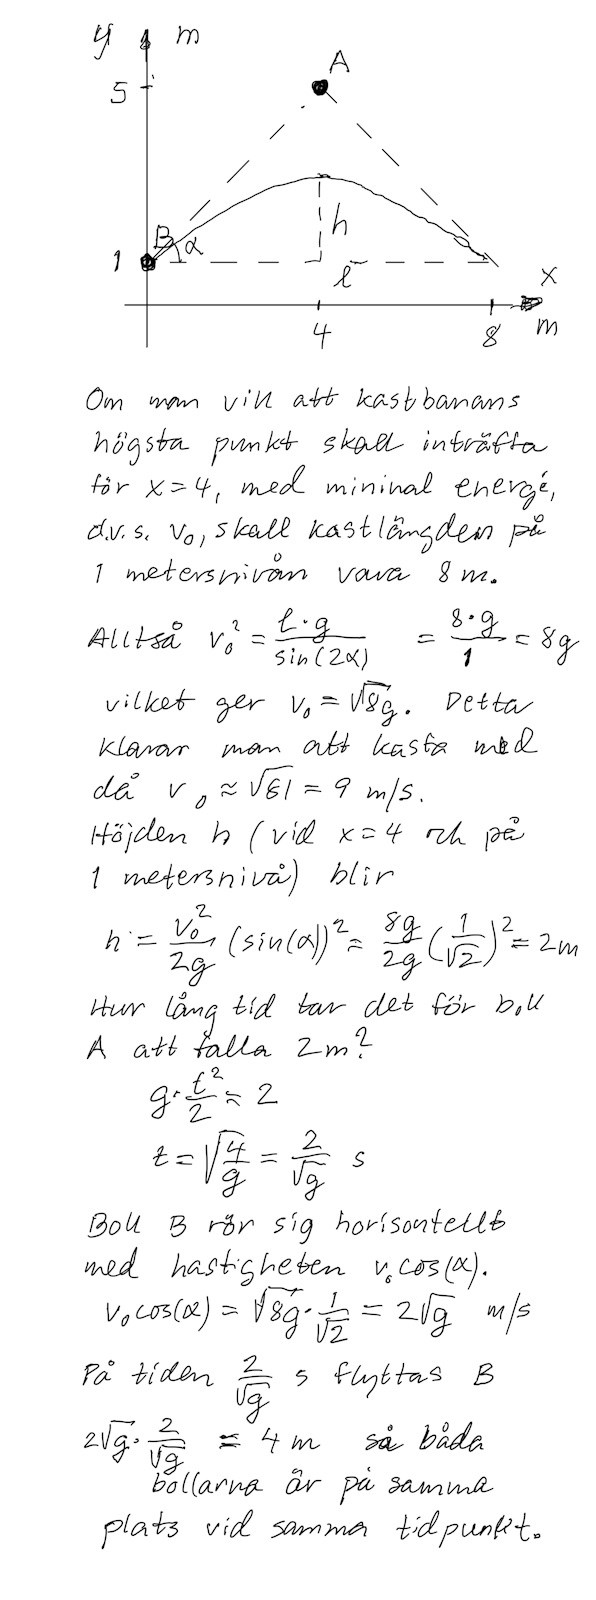 y m
A
5
B α h
1
l
x
4 8 m
Om man vill att kastbanans
högsta punkt skall inträffa
för x=4, med mininal energi,
d.v.s. v₀, skall kastlängden på
1 metersnivån vara 8 m.
Alltså v₀² = l·g / sin(2α) = 8·g / 1 = 8g
vilket ger v₀ = √8g. Detta
klarar man att kasta med
då v₀ ≈ √81 = 9 m/s.
Höjden h (vid x=4 och på
1 metersnivå) blir
h = v₀²/2g (sin(α))² = 8g/2g (1/√2)² = 2m
Hur lång tid tar det för boll
A att falla 2m?
g·t²/2 = 2
t = √4/g = 2/√g s
Boll B rör sig horisontellt
med hastigheten v₀cos(α).
v₀cos(α) = √8g · 1/√2 = 2√g m/s
På tiden 2/√g s flyttas B
2√g · 2/√g = 4 m så båda
bollarna är på samma
plats vid samma tidpunkt.